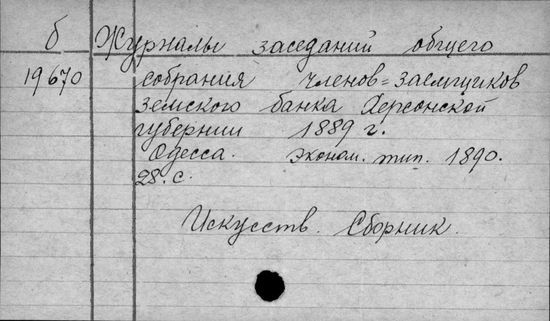 б Журналы заседаний общего
19670 собрания членов=заемщиков
земского банка Херсонской
губернии 1889 г.
Одесса. Эконом. тип. 1890.
28. с.
Искусств. Сборник.